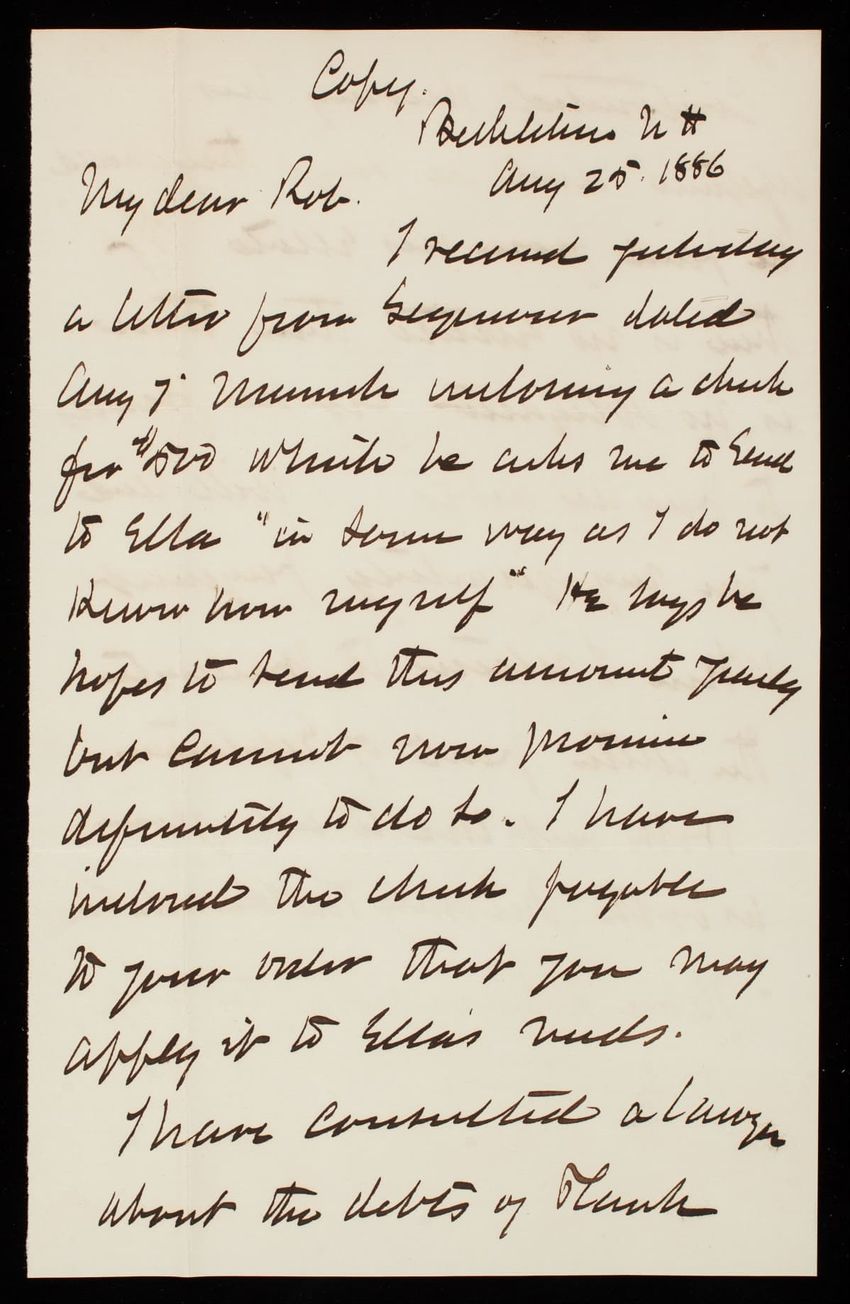 Copy.
Bethlehem N H
Aug 25. 1886
My dear Rob.
I received yesterday
a letter from Seymour dated
Aug 7" Munich inclosing a check
for $500 which he asks me to send
to Ella "in some way as I do not
know how myself" He says he
hopes to send this amount yearly
but cannot now promise
definitely to do so. I have
indorsed the check payable
to your order that you may
apply it to Ella's needs.
I have consulted a lawyer
about the debts of